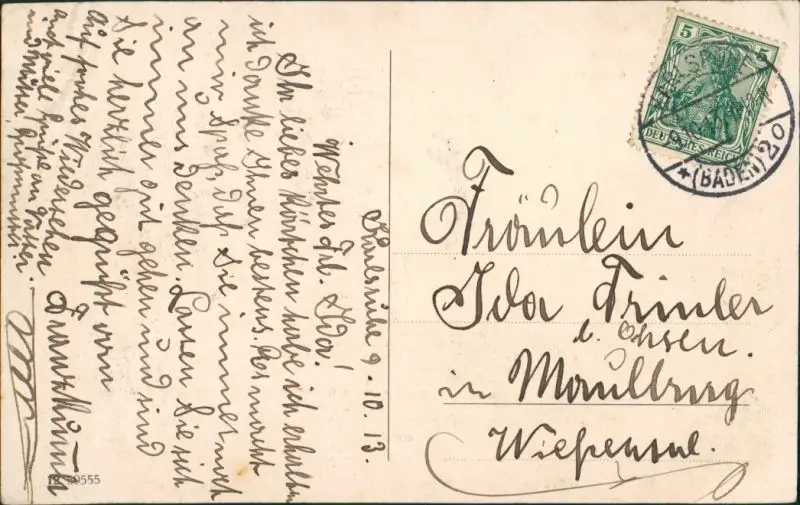 Karlsruhe 9.10.13.
Wehrtes Frl. Ida!
Ihr liebes Kärtchen habe ich erhalten
ich danke Ihnen bestens. Es macht
mir Spaß, daß Sie immer noch
an uns denken. Lassen Sie sich
immer gut gehen und sind
Sie herzlich gegrüßt von
auf frohes Wiedersehen
Franz
auch viele Grüße an
und Mutter
5 5
DEUTSCHES REICH
*(BADEN) 20
Fräulein
Ida Trinler
z. Ochsen.
in Maulburg
Wiesental.